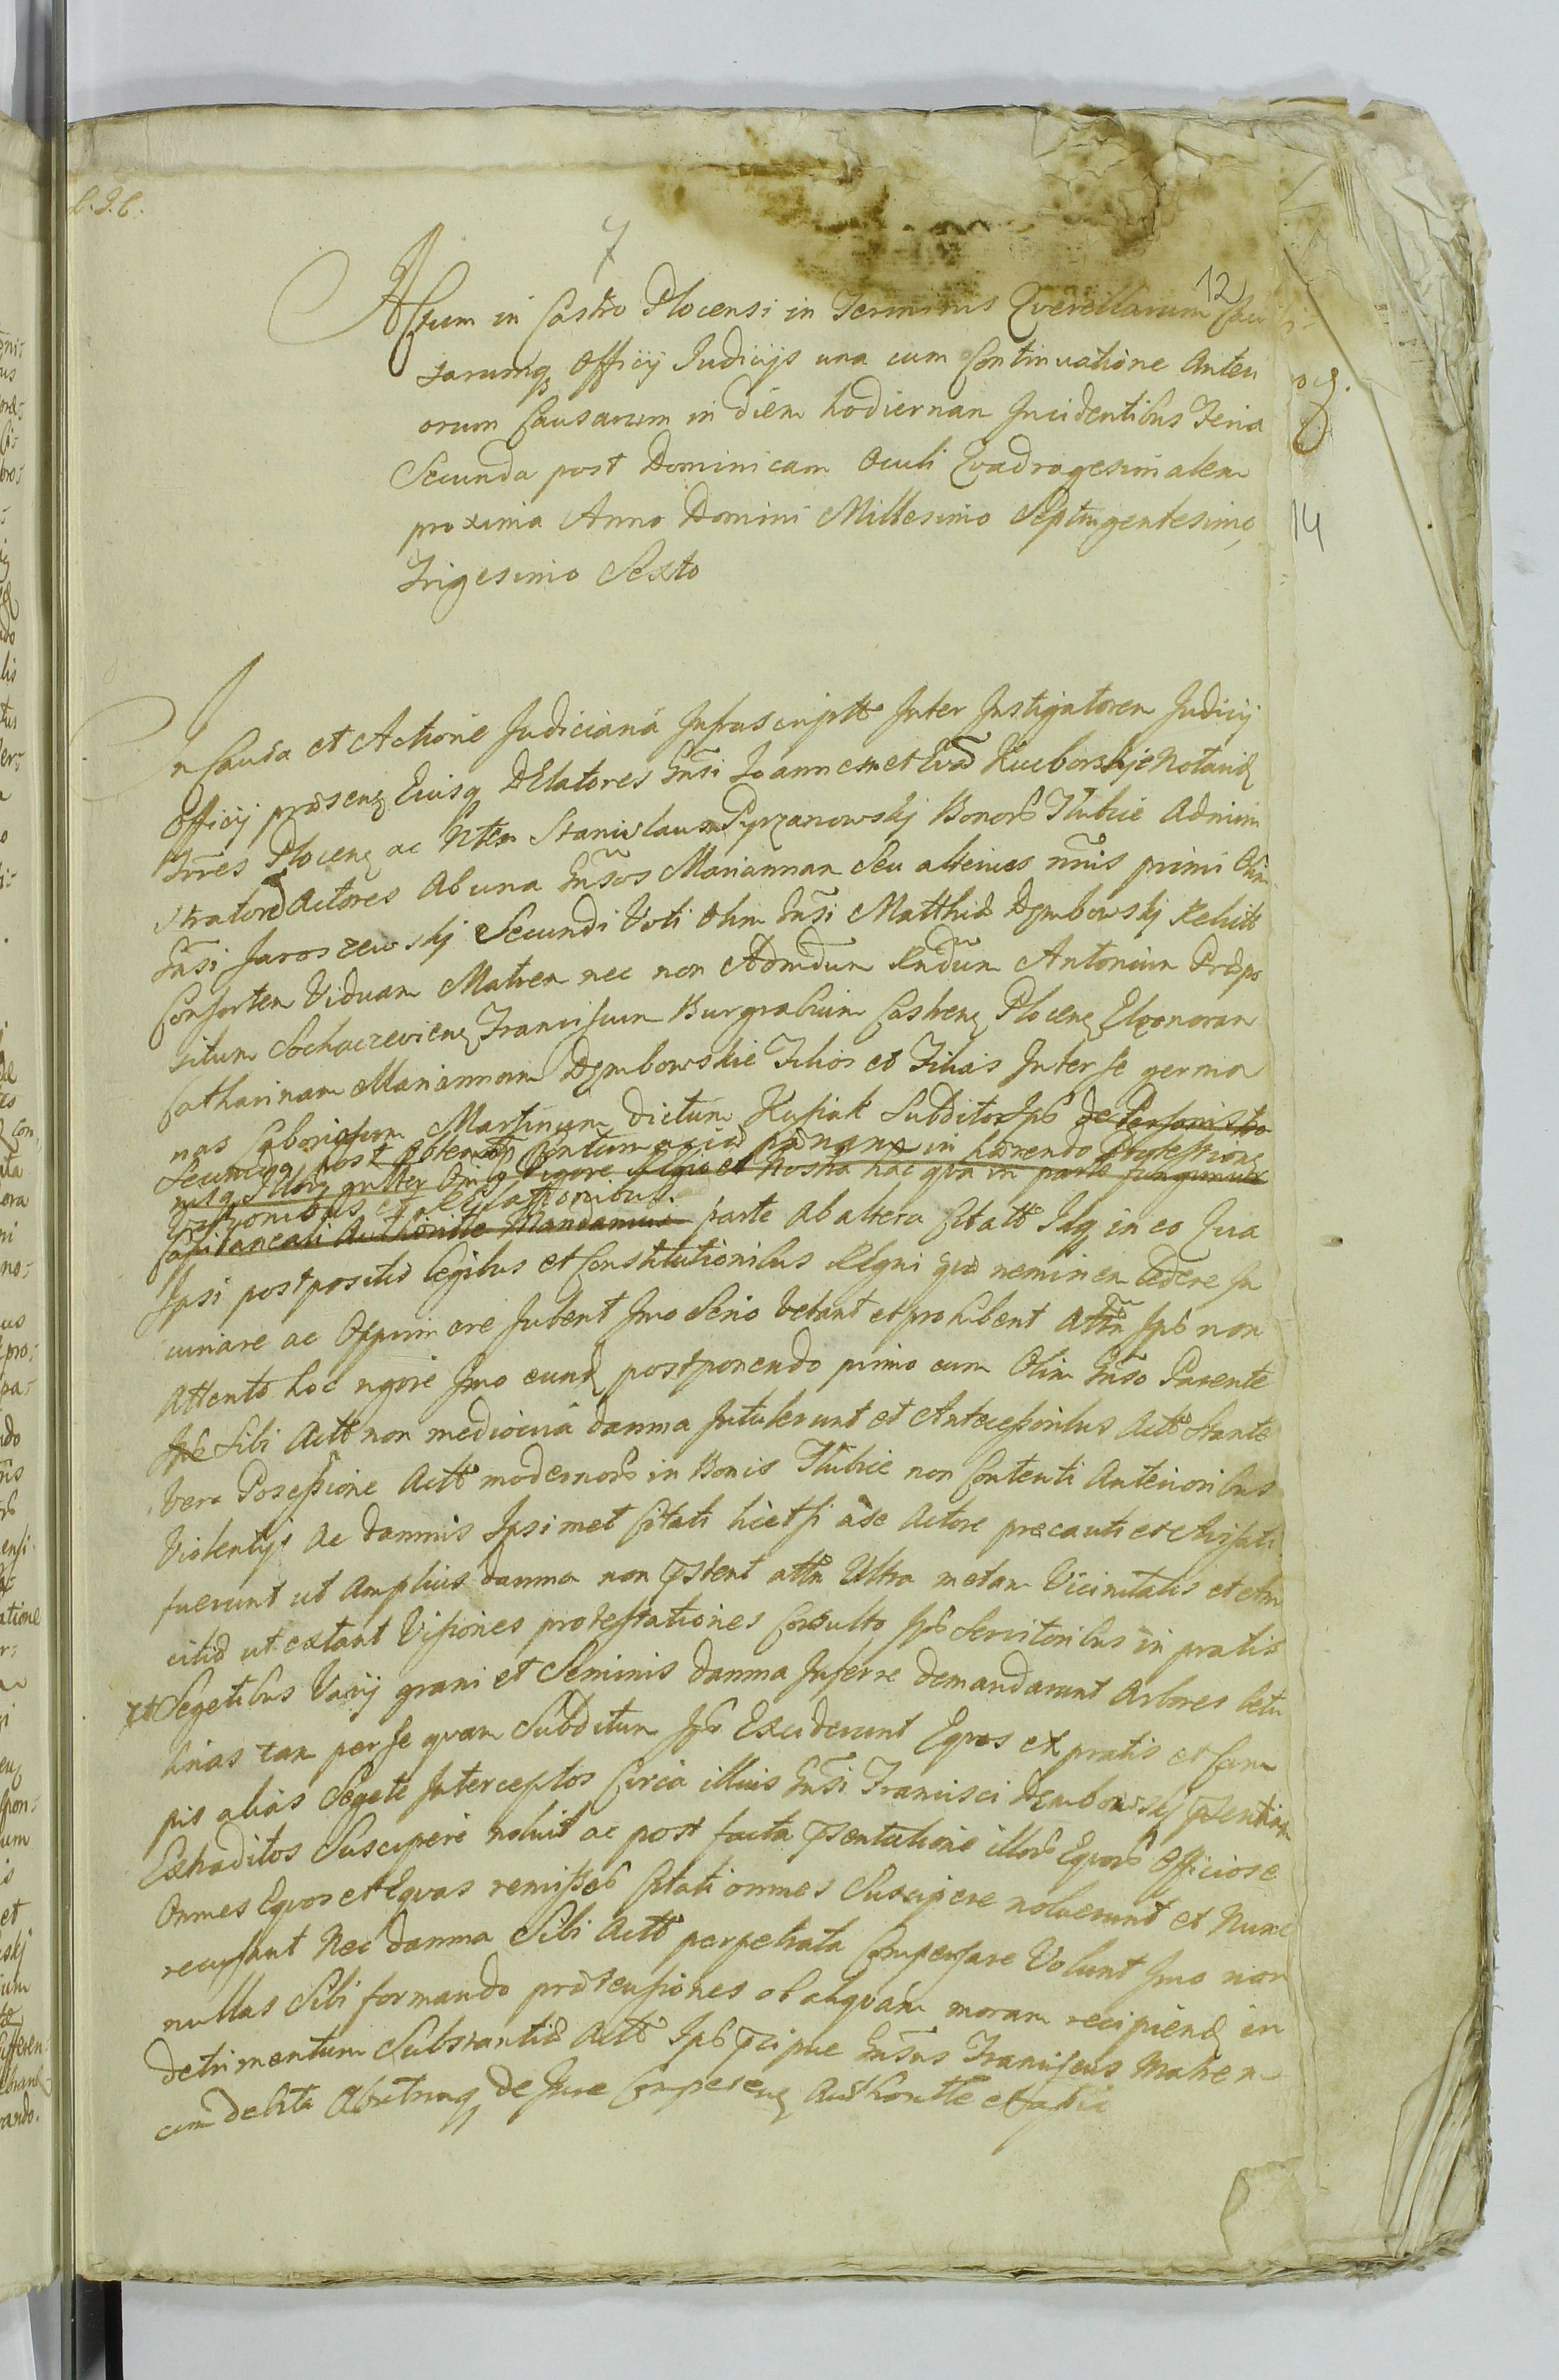 L. J. C.
7
12
Actum in Castro Plocensi in Terminis Querellarum Cau
sarumq Officij Judicijs una cum Continuatione Anteri
orum Causarum in diem hodiernam Incidentibus Feria
Secunda post Dominicam Oculi Quadragesimalem
proxima Anno Domini Millesimo Septingentesimo
14
Trigesimo Sexto
In Causa et Actione Judiciaria Infrascriptt Inter Instigatorem Judicij
Officij præsenq Eiusq DElatores Gnsi Joannem et Kucborskje Notarij
Trres Plocenq ac Stanislaum Pyrzanowskj Bonorb Tlubice Admini
stratore Actores Ab una Gnsos Mariannam Seu alterius nnis primi Olim
Gnsi Jaroszewskj Secundi Voti Olim Gnsi Matthiæ Dzmbowskj Relictt
Consortem Viduam Matrem nec non Admdum Rndum Antonium Præpo
situm Sochaczevienq Franciscum Burgrabium Castrenq Plocenq Eleonoram
Catharinam Mariannam Dzmbowskie Filios et Filias Inter se germa
nas Laboriosum Martinum dictum Kusiak Subditos Ipb de Personis
Secundæ post obtentam Contumaciæ pænam in hærendo Protestione
Vigore et Nostra hac qva in parte fungimur
Capitaneali Authoritte Mandamus parte Ab altera Citatt Ideq in eo Qvia
Ipsi postpositis legibus et Constitutionibus REgni qvæ neminem lædere In
iuriare ac Opprimere Jubent Imo Serio Vetant et prohibent Attn Ipb non
Attento hoc rigore Imo eund postponendo primo cum Olim Gnso Parente
Sibi Actt non mediocria damna Intulerunt et Antecessoribus Actt Stante
Vero Posessione Actt modernorb in Bonis Tlubice non Contenti Anterioribus
Violentijs Ac damnis Ipsimet Citati licet si a se Actore præcauti et Avisati
fuerunt ut Amplius damna non pstent attn Ultra metam Vicinitatis et Am
icitiæ ut extant Visiones protestationes Consulto Ipb Servitoribus in pratis
et Segetibus Varij grani et Seminis damna Inferre demandarunt Arbores betu
linas tam per se qvam Subditum Ipb Exciderunt Eqvos ex pratis et Cam
pis alias Segete Interceptos Circa illius Gnsi Francisci Dzmbowskj psentiam
Extraditos Suscipere noluit ac post facta psentatione illorb Eqvorb Officiose
Omnes Eqvos et Eqvas remissab Citati omnes Suscipere noluerunt et Nunc
recusant Nec damna Sibi Actt perpetrata Compensare Volunt Imo non
nullas Sibi formando prætensiones ob aliqvam moram recipiend in
detrimentum Substantiæ Actt Ipb pcipue Gnsus Franciscus Matrem
cum debita Ab utraq de Jure Comperenq Authoritte